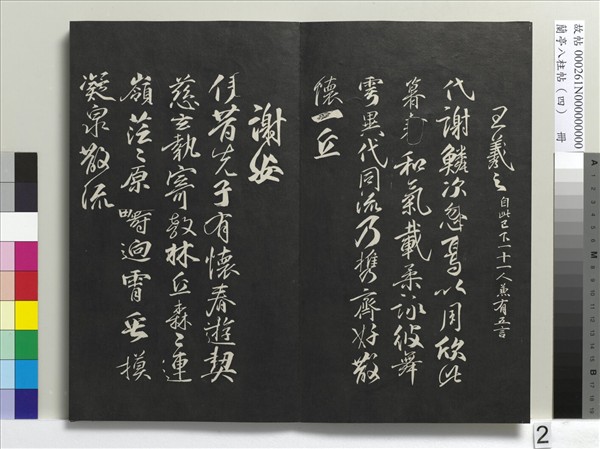 故帖 000261N000000000
蘭亭八柱帖（四）　冊
王羲之 自此已下一十一人兼有五言
代謝鱗次忽焉以周欣此
暮春和氣載柔詠彼舞
雩異代同流乃携齊好散
懷一丘
謝安
伊昔先子有懷春遊契
慈言執寄敖林丘森〻連
嶺茫〻原疇逈霄垂模
凝泉散流
2